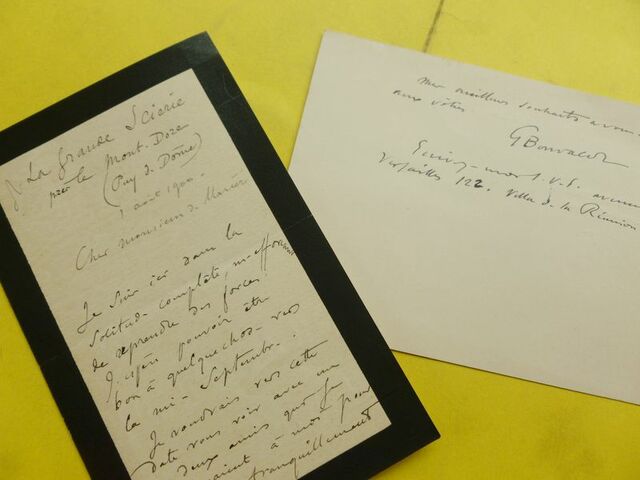 La Grande Scierie
par le Mont-Dore
(Puy de Dôme)
1 août 1900.
Cher monsieur de
Je suis ici dans la
solitude complète, m'efforçant
de reprendre des forces
J'espère pouvoir être
bon à quelque chose vers
la mi-Septembre.
Je voudrais vers cette
date vous voir avec un
deux amis que je
à moi pour
tranquillement
Mes meilleurs souhaits à vous
aux vôtres
GBonvalot
Ecrivez-moi v. s. avenue
Versailles 122. Villa de la Réunion